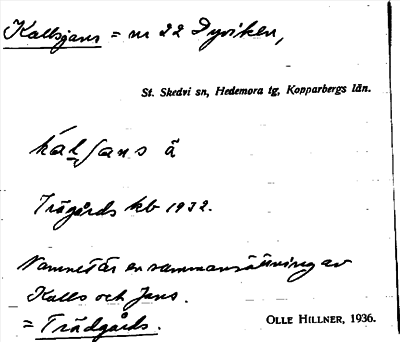 Kallsjans = nr 22 Dyviken,
St. Skedvi sn, Hedemora tg, Kopparbergs län.
kalsans ä
Trägårds kb 1932.
Namnet är en sammansättning av
Kalls och Jans.
= Trädgårds.
OLLE HILLNER, 1936.